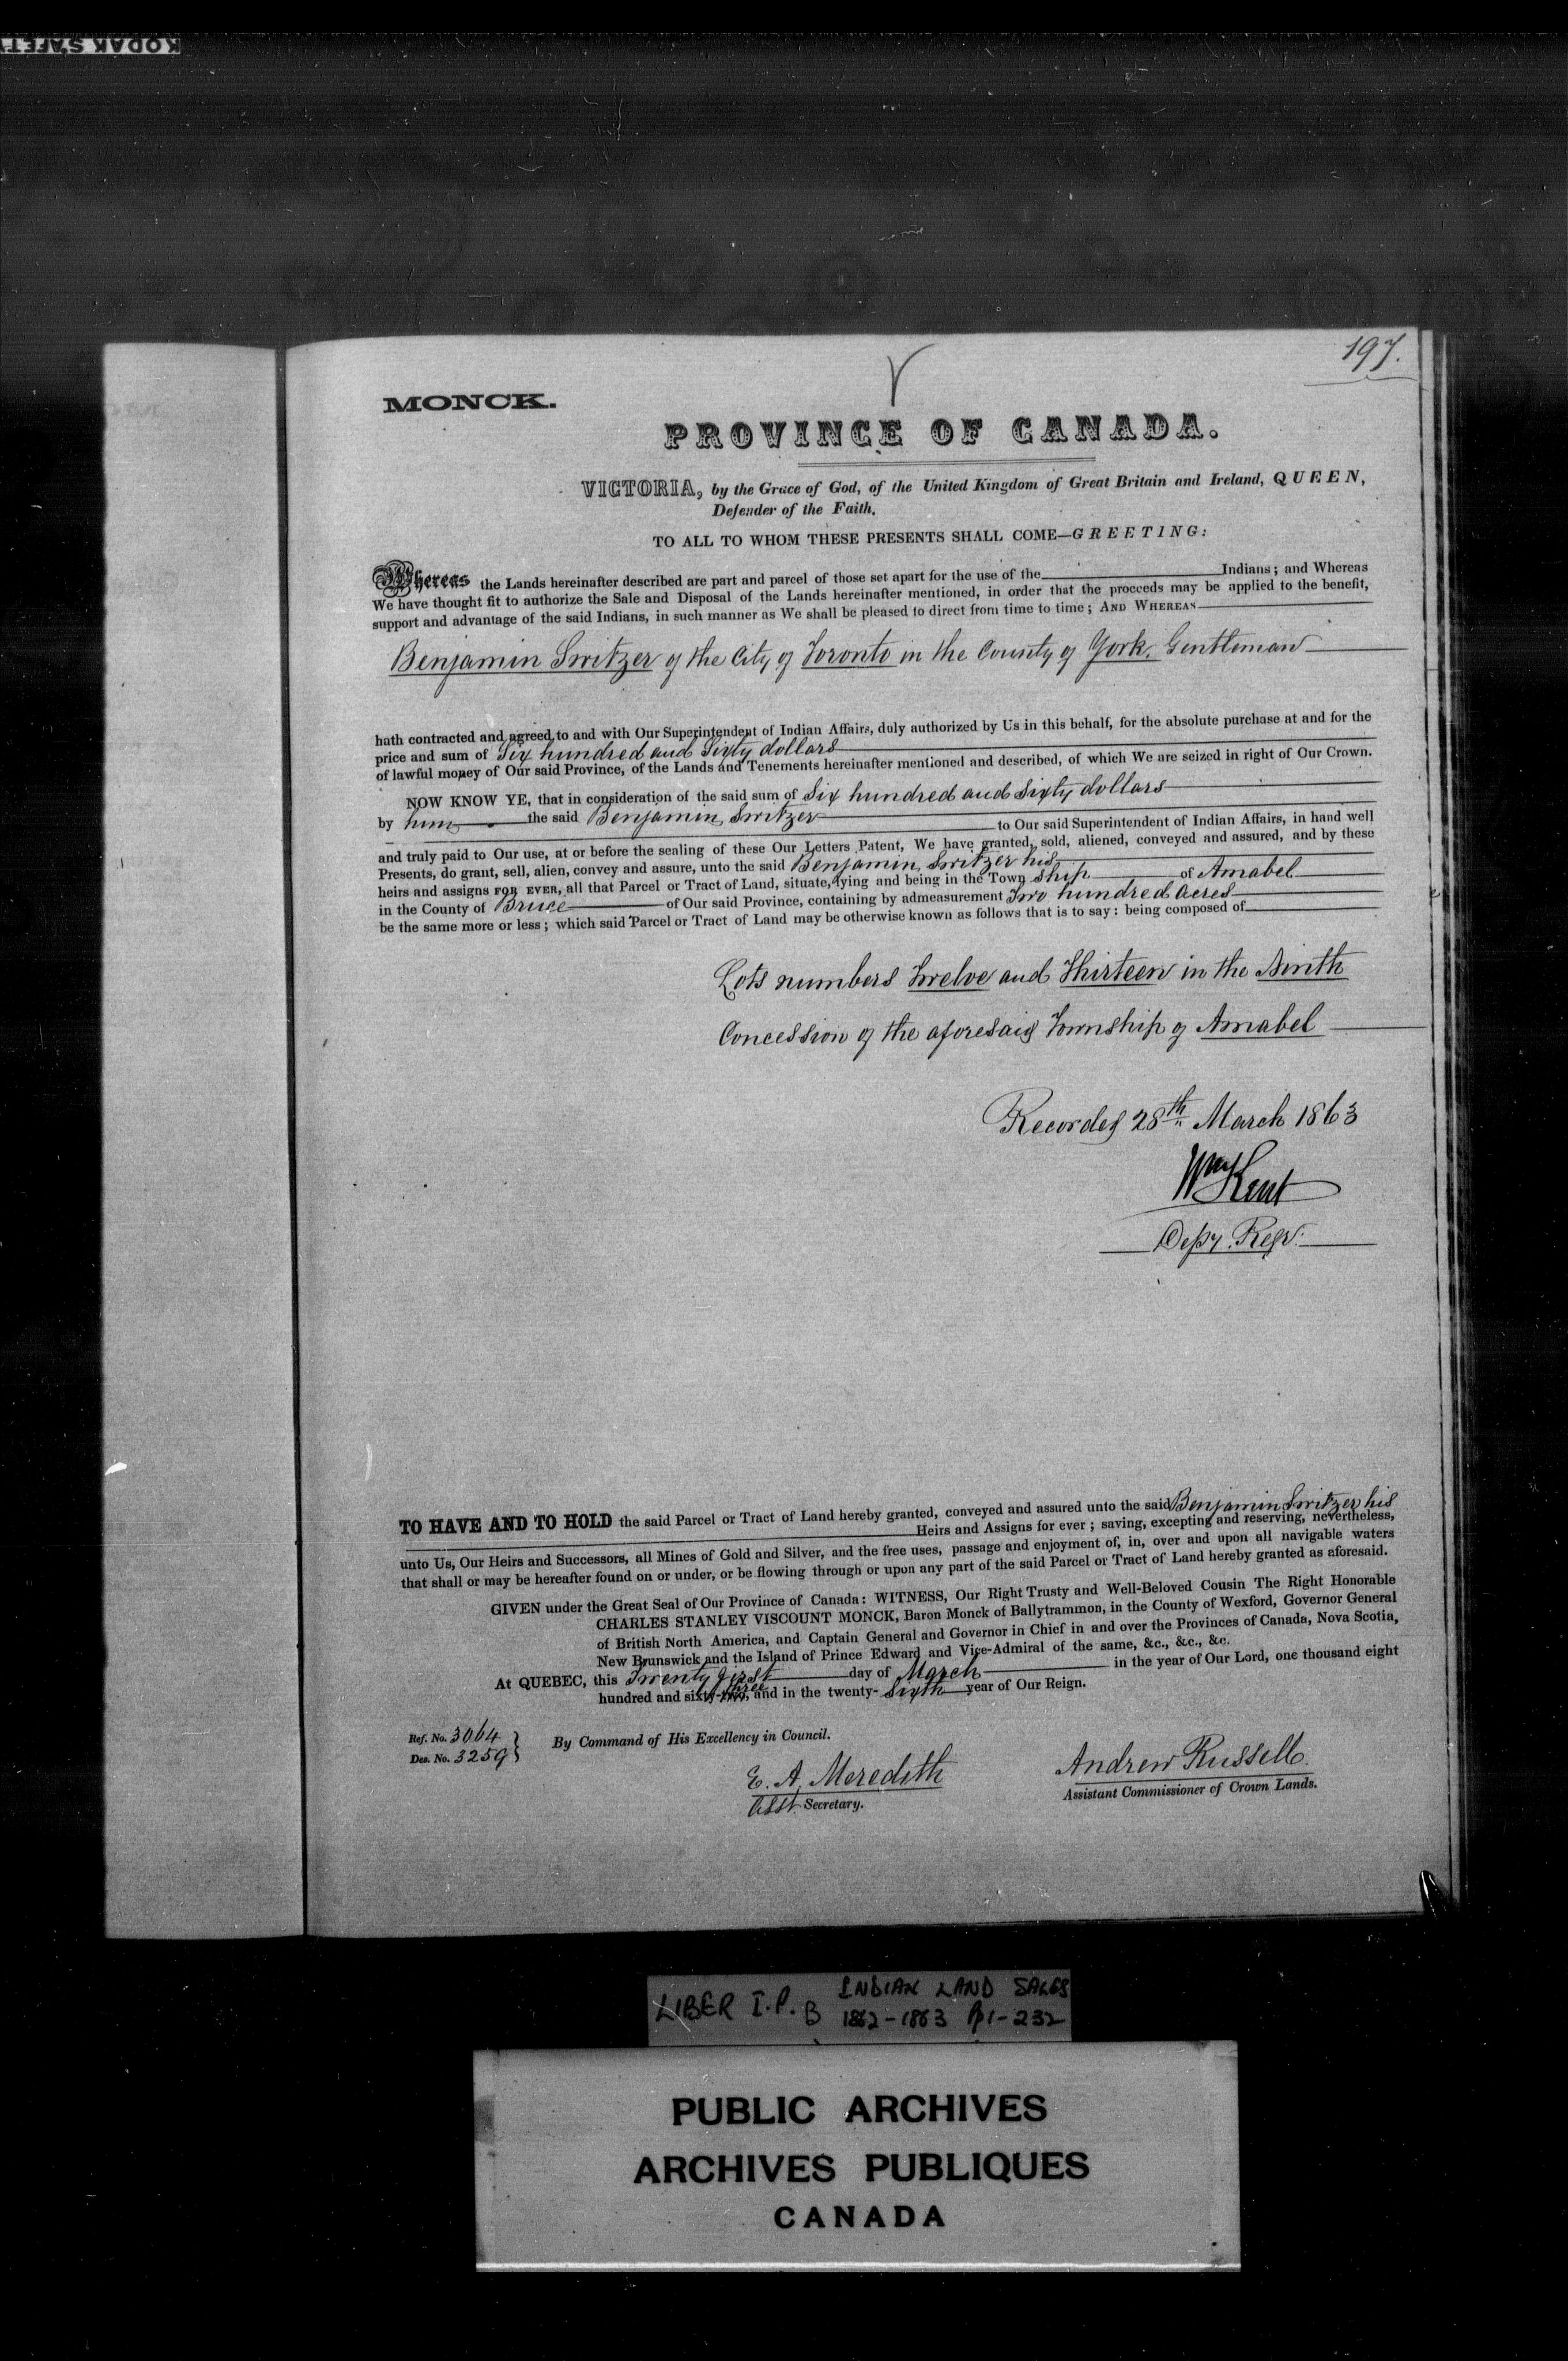 KODAK SAFETY
197.
MONCK.
PROVINCE OF CANADA.
VICTORIA, by the Grace of God, of the United Kingdom of Great Britain and Ireland, QUEEN,
Defender of the Faith.
TO ALL TO WHOM THESE PRESENTS SHALL COME—GREETING:
Whereas the Lands hereinafter described are part and parcel of those set apart for the use of the Indians; and Whereas
We have thought fit to authorize the Sale and Disposal of the Lands hereinafter mentioned, in order that the proceeds may be applied to the benefit,
support and advantage of the said Indians, in such manner as We shall be pleased to direct from time to time; AND WHEREAS
Benjamin Switzer of the City of Toronto in the County of York, Gentleman
hath contracted and agreed to and with Our Superintendent of Indian Affairs, duly authorized by Us in this behalf, for the absolute purchase at and for the
price and sum of Six hundred and Sixty dollars
of lawful money of Our said Province, of the Lands and Tenements hereinafter mentioned and described, of which We are seized in right of Our Crown.
NOW KNOW YE, that in consideration of the said sum of Six hundred and Sixty dollars
by him the said Benjamin Switzer
to Our said Superintendent of Indian Affairs, in hand well
and truly paid to Our use, at or before the sealing of these Our Letters Patent, We have granted, sold, aliened, conveyed and assured, and by these
Presents, do grant, sell, alien, convey and assure, unto the said Benjamin Switzer his
heirs and assigns FOR EVER, all that Parcel or Tract of Land, situate, lying and being in the Town ship of Amabel
in the County of Bruce of Our said Province, containing by admeasurement Two hundred Acres
be the same more or less; which said Parcel or Tract of Land may be otherwise known as follows that is to say: being composed of
Lots numbers Twelve and Thirteen in the Ninth
Concession of the aforesaid Township of Amabel
Recorded 28th March 1863
Wm Kent
Depy. Regr.
TO HAVE AND TO HOLD the said Parcel or Tract of Land hereby granted, conveyed and assured unto the said Benjamin Switzer his
Heirs and Assigns for ever; saving, excepting and reserving, nevertheless,
unto Us, Our Heirs and Successors, all Mines of Gold and Silver, and the free uses, passage and enjoyment of, in, over and upon all navigable waters
that shall or may be hereafter found on or under, or be flowing through or upon any part of the said Parcel or Tract of Land hereby granted as aforesaid.
GIVEN under the Great Seal of Our Province of Canada: WITNESS, Our Right Trusty and Well-Beloved Cousin The Right Honorable
CHARLES STANLEY VISCOUNT MONCK, Baron Monck of Ballytrammon, in the County of Wexford, Governor General
of British North America, and Captain General and Governor in Chief in and over the Provinces of Canada, Nova Scotia,
New Brunswick and the Island of Prince Edward and Vice-Admiral of the same, &c., &c., &c.
At QUEBEC, this Twenty first day of March in the year of Our Lord, one thousand eight
hundred and sixty-two, three and in the twenty- Sixth year of Our Reign.
Ref. No. 3064 }
Des. No. 3259 }
By Command of His Excellency in Council.
E. A. Meredith
Asst Secretary.
Andrew Russell
Assistant Commissioner of Crown Lands.
LIBER I.P. B INDIAN LAND SALES
1862-1863 Pp 1-232
PUBLIC ARCHIVES
ARCHIVES PUBLIQUES
CANADA